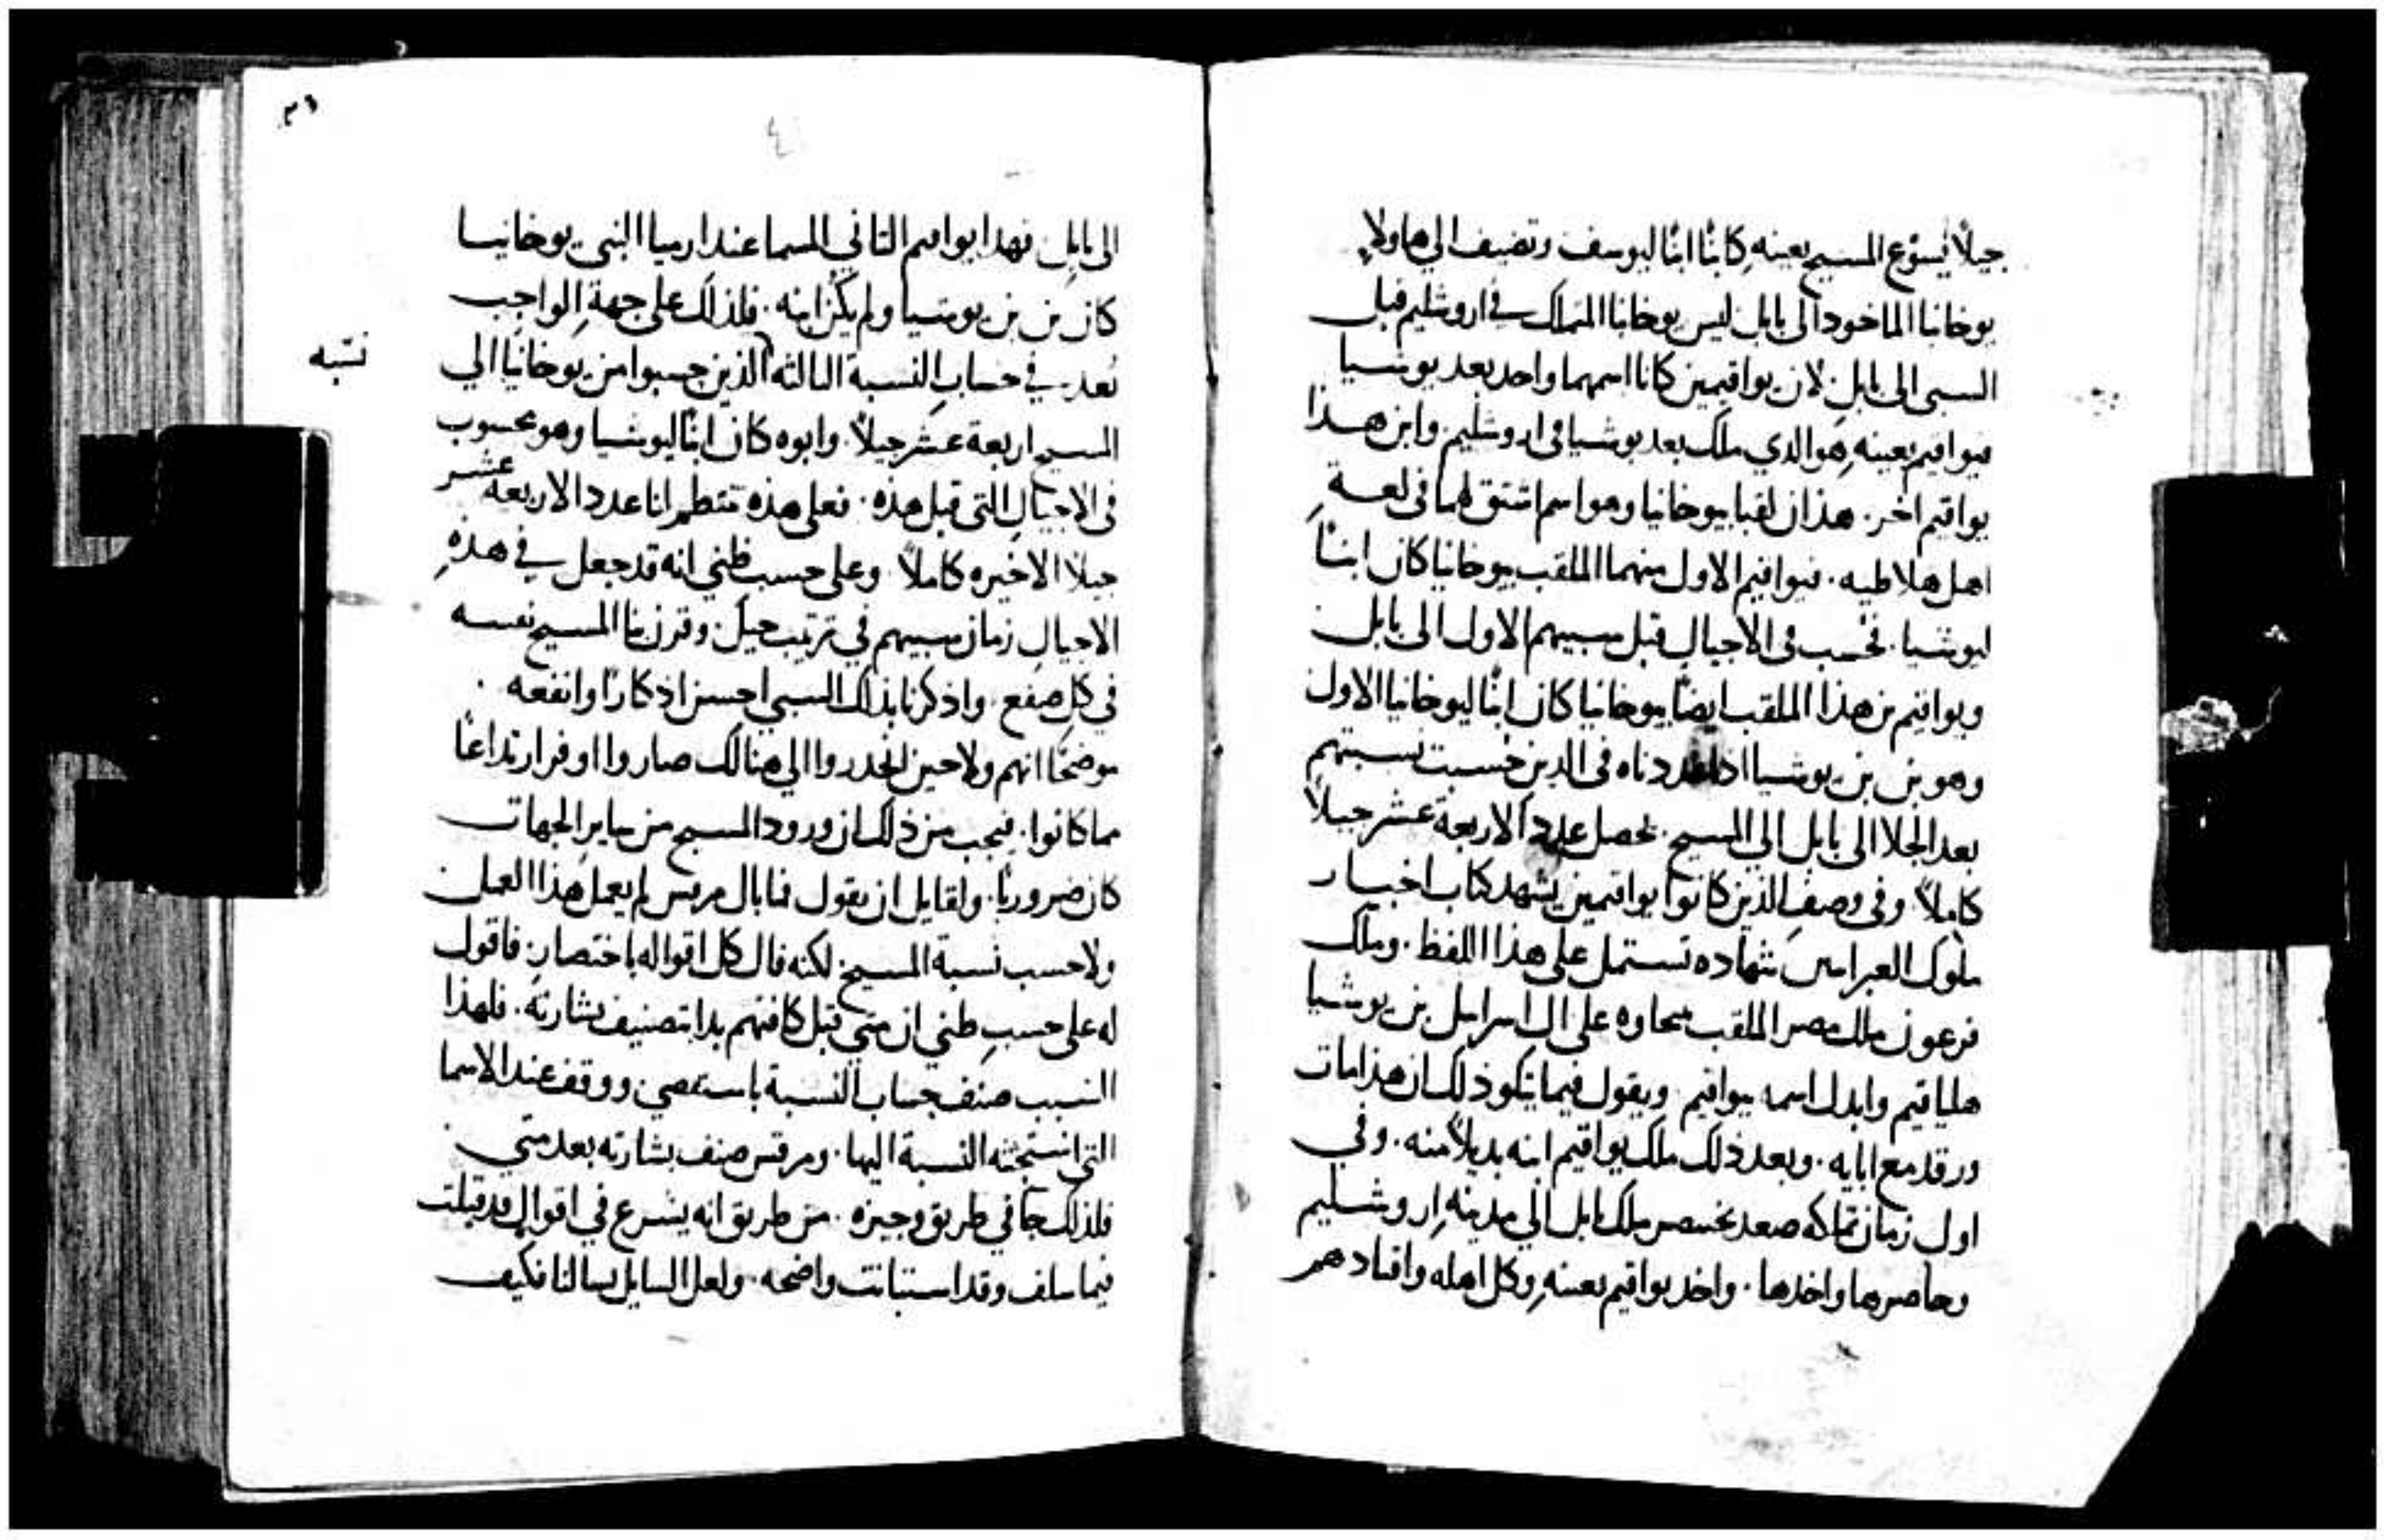 جيلاً يسوع المسيح بعينه كابنًا ابنًا ليوسف وتضيف الي هاولاء
يوخانيا الماخود الى بابل ليس يوخانيا المتملك في اروشليم قبل
السبى الى بابل لان يواقيمين كانا اسمهما واحد بعد يوشيا
فيواقيم بعينه هو الدي ملك بعد يوشيا فى اروشليم وابن هذا
يواقيم اخر. هذان لقبا بيوخانيا وهو اسم اشتق لهما فى لغة
اهل هلاطيه. فيواقيم الاول منهما الملقب بيوخانيا كان ابنًا
ليوشيا. فحسب فى الاجيال قبل سبيهم الاول الى بابل
ويواقيم بن هذا الملقب ايضًا بيوخانيا كان ابنًا ليوخانيا الاول
وهو بن بن يوشيا اذا عددناه فى الدين حسبت نسبتهم
بعد الجلا الى بابل الي المسيح. تحصل عدد الاربعة عشر جيلاً
كاملاً وفى وصف الذين كانوا يواقيمين يشهد كتاب اخبار
ملوك العبرانيين شهاده تستمل على هذا اللفظ. وملك
فرعون ملك مصر الملقب بنحاوه على ال اسراييل بن يوشيا
هلياقيم وابدل اسمه بيواقيم ويقول فيما يتلو ذلك ان هذا مات
ورقد مع ابايه. وبعد ذلك ملك يواقيم ابنه بديلاً منه. وفي
اول زمان تملكه صعد بختنصر ملك بابل الي مدينة اروشليم
وحاصرها واخدها. واخد يواقيم بعينه وكل اهله واقتادهم
٣١
الى بابل فهدا يواقيم التاني المسما عند ارميا النبى يوخانيا
كان بن بن يوشيا ولم يكن ابنه. فلذلك على جهة الواجب
نعد في حساب النسبة التالته الذين حسبوا من يوخانيا الي
نسبه
المسيح اربعة عشر جيلاً. وابوه كان ابنًا ليوشيا وهو محسوب
فى الاجيال التى قبل هذه. فعلى هذه تنتظم لنا عدد الاربعة عشر
جيلا الاخيره كاملاً وعلى حسب ظني انه قد جعل في هذه
الاجيال زمان سبيهم في ترتيب جيل وقرن بنا المسيح نفسه
في كل صقع. واذكرنا بذلك السبي احسن اذكارًا وانفعه.
موضحًا انهم ولا حين انحدروا الي هنالك صاروا اوفر ارتداعًا
مما كانوا. فيجب من ذلك ان ورود المسيح من ساير الجهات
كان ضروريًا. ولقايل ان يقول فما بال مرقس لم يعمل هذا العمل
ولا حسب نسبة المسيح لكنه قال كل اقواله باختصار. فاقول
له على حسب ظني ان متي قبل كافتهم بدا بتصنيف بشارته. فلهذا
السبب صنف حساب النسبة باستقصي ووقف عند الاسما
التى استحثته النسبة اليها. ومرقس صنف بشارته بعد متي.
فلذلك جا في طريق وجيزه. من طريق انه يشرع في اقوال قد قيلت
فيما سلف وقد استبانت واضحه. ولعل السايل يسالنا فكيف